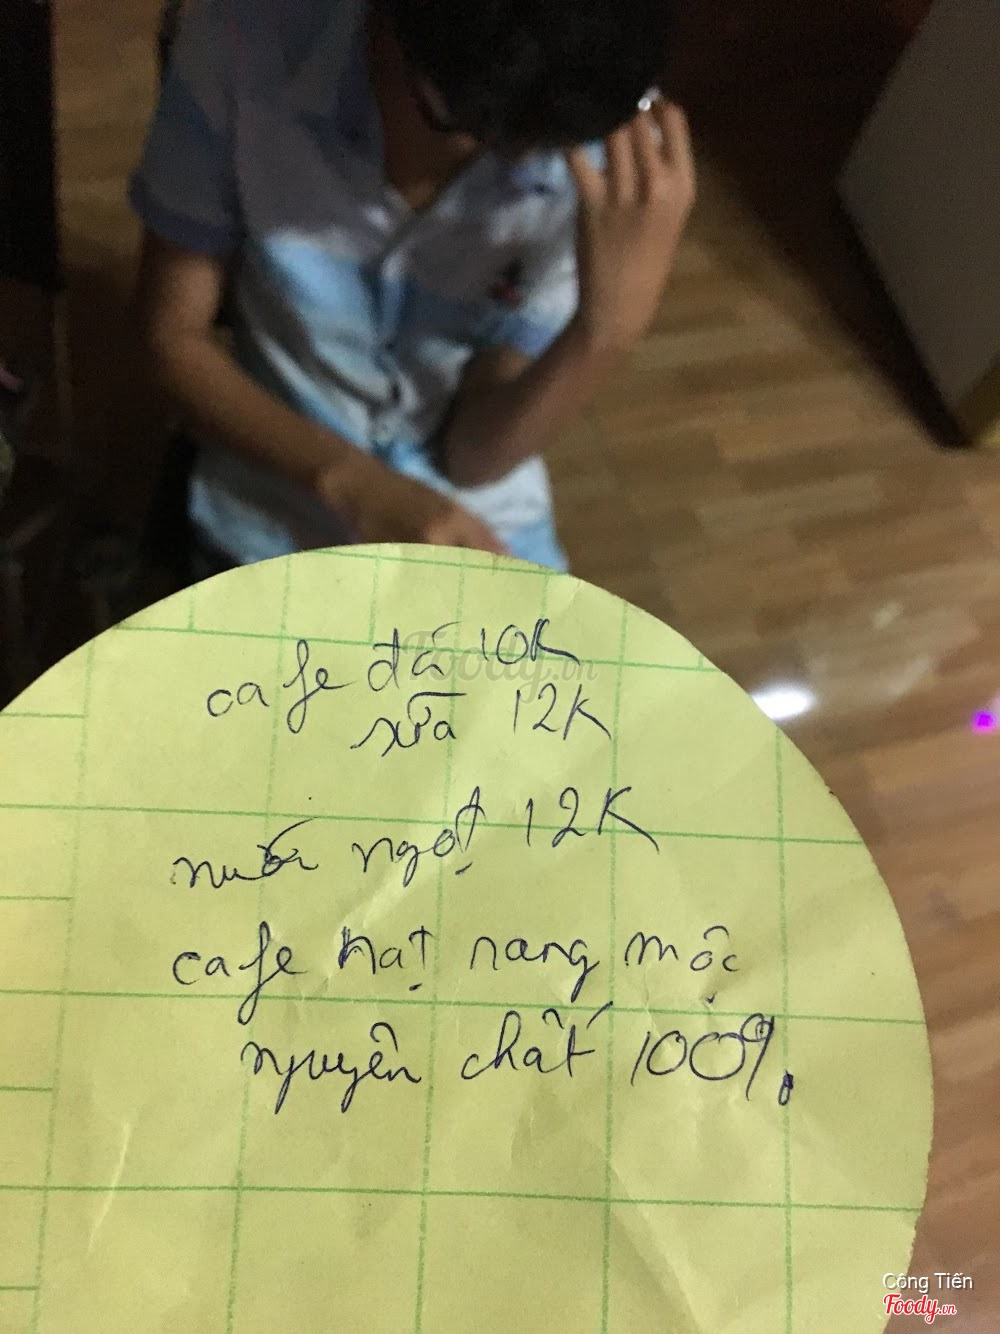 cafe đá 10K
sữa 12K
nước ngọt 12K
cafe hạt rang mộc
nguyên chất 100%
Foody.vn
Công Tiến
Foody.vn